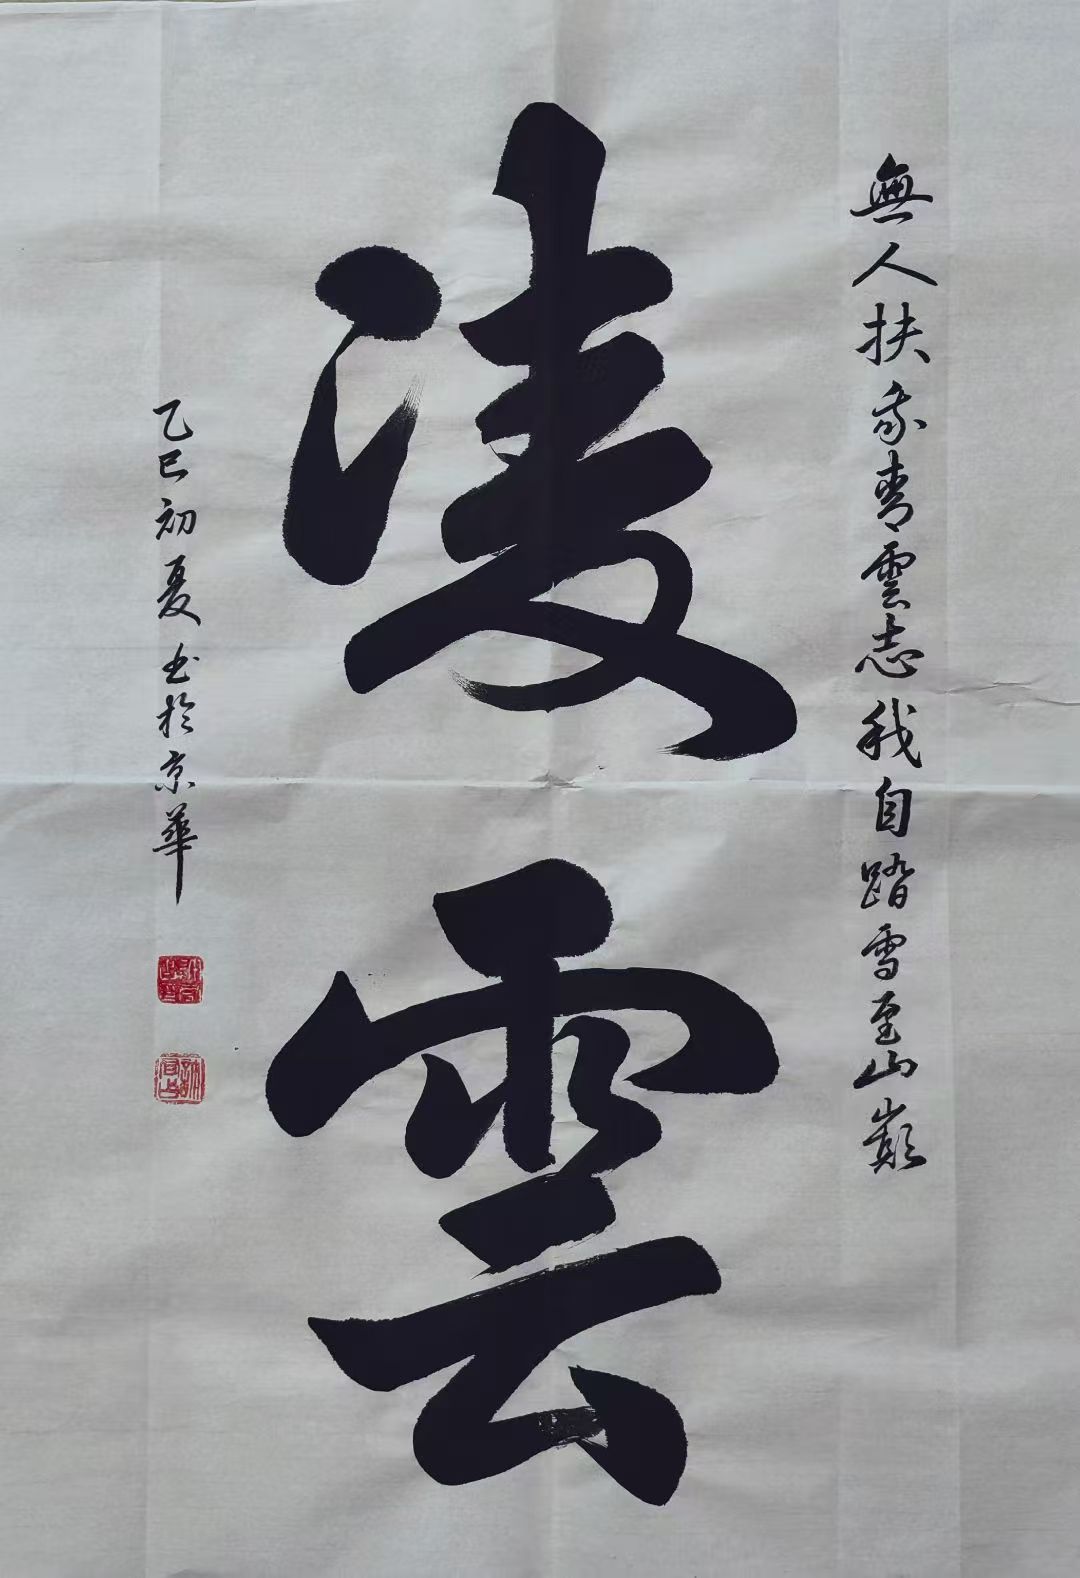 無人扶我青雲志我自踏雪至山巔
凌雲
乙巳初夏书於京華